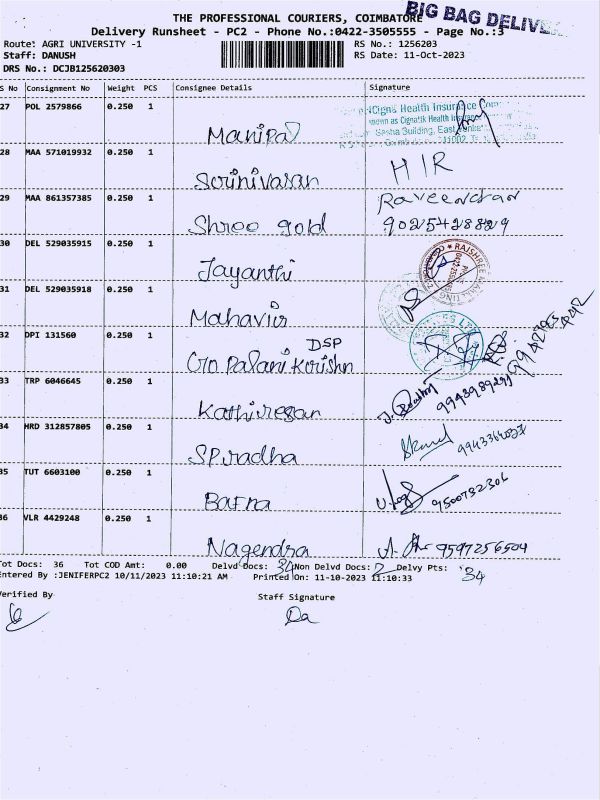 BIG BAG DELIVE
THE PROFESSIONAL COURIERS, COIMBATORE
Delivery Runsheet - PC2 - Phone No.:0422-3505555 - Page No.:3
Route: AGRI UNIVERSITY -1 RS No.: 1256203
Staff: DANUSH RS Date: 11-Oct-2023
DRS No.: DCJB125620303
S No Consignment No Weight PCS Consignee Details Signature
27 POL 2579866 0.250 1 Manipal
Cigna Health Insurance Com
nown as Cigna
28 MAA 571019932 0.250 1 Srinivasan HIR
29 MAA 861357385 0.250 1 Shree gold Raveendran
9025428829
30 DEL 529035915 0.250 1 Jayanthi
31 DEL 529035918 0.250 1 Mahavir
32 DPI 131560 0.250 1 DSP
C/o Palani Krishn
33 TRP 6046645 0.250 1 Kathiresan
34 HRD 312857805 0.250 1 SP.radha 9943364037
35 TUT 6603100 0.250 1 Bafna 9500732306
36 VLR 4429248 0.250 1 Nagendra 9597256504
Tot Docs: 36 Tot COD Amt: 0.00 Delvd Docs: 34 Non Delvd Docs: 2 Delvy Pts: 34
Entered By :JENIFERPC2 10/11/2023 11:10:21 AM Printed On: 11-10-2023 11:10:33
Verified By Staff Signature